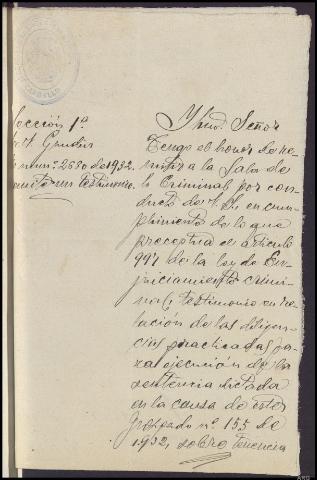 Sección 1ª
num. 2680 de 1932.
un testimonio.
Ylmo. Señor
Tengo el honor de re-
mitir a la Sala de
lo Criminal, por con-
ducto de V. I. en cum-
plimiento de lo que
preceptua el articulo
997 de la ley de En-
juiciamiento crimi-
nal, testimonio en re-
lación de las diligen-
cias practicadas pa-
ra ejecución de la
sentencia dictada
en la causa de este
Juzgado nº 155 de
1932, sobre tenencia